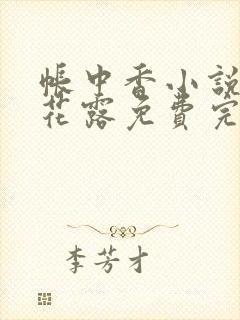 帳中香小說
花露免費完
李芳才